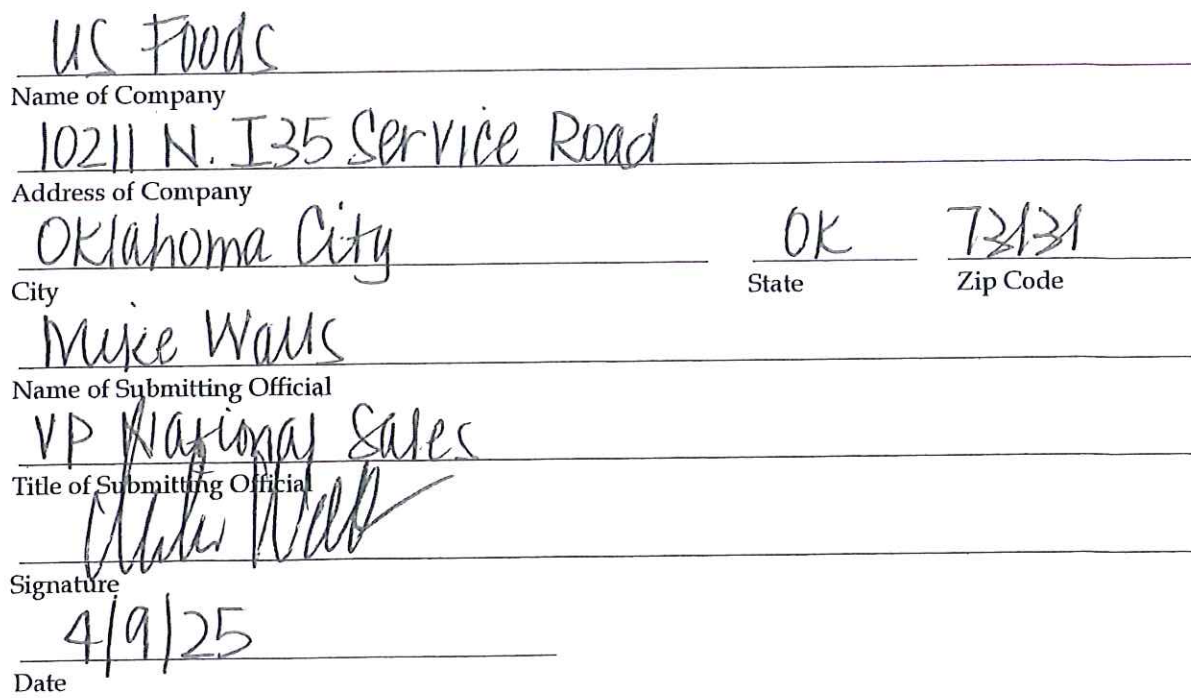 US Foods
Name of Company
10211 N. I35 Service Road
Address of Company
Oklahoma City OK 73131
City State Zip Code
Mike Walls
Name of Submitting Official
VP National Sales
Title of Submitting Official
Signature
4/9/25
Date